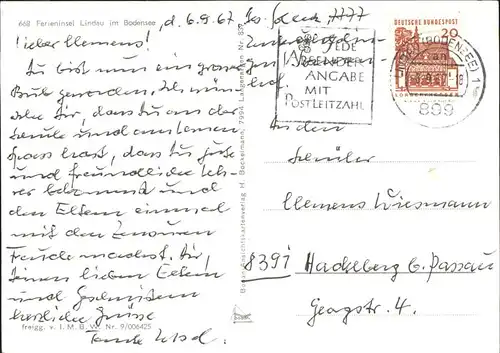 668 Ferieninsel Lindau im Bodensee
d. 6.9.67
Lieber Klemens!
Du bist nun ein grosser
Bub geworden. Ich wün-
sche Dir, dass Du an der
Schule und am Lernen
Spass hast, dass Du gute
und freundliche Leh-
rer bekommst und
den Eltern einmal
mit den Zensuren
Freude machst. Dir,
Deinen lieben Eltern
und Geschwistern
herzliche Grüsse
Tante
freigg. v. I. M. B. W. Nr. 9/006425
Bodensee-Ansichtskartenverlag H. Bockelmann, 7994 Langenargen Nr. 837
JEDE
ABSENDER-
ANGABE
MIT
POSTLEITZAHL
DEUTSCHE BUNDESPOST
20
LINDAU (BODENSEE) 1
899
An den
Schüler
Klemens Wiesmann
8391 Hackelberg b. Passau
Georgstr. 4.